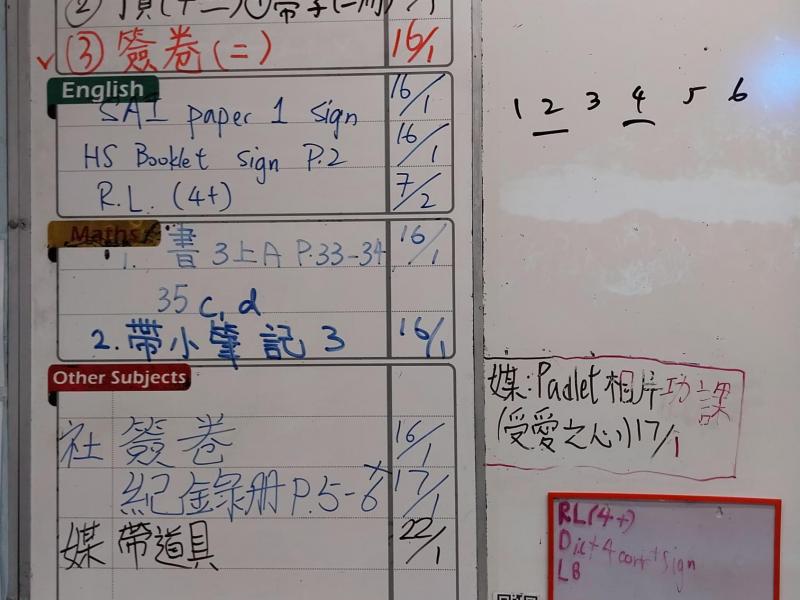 (3) 簽卷(二) 16/1
English
SA1 paper 1 sign 16/1
HS Booklet sign P.2 16/1
R.L. (4+) 7/2
Maths
1. 書 3上A P.33-34 16/1
35 c, d
2. 帶小筆記 3 16/1
Other Subjects
社 簽卷 16/1
紀錄册 P.5-6 17/1
媒 帶道具 22/1
1 2 3 4 5 6
媒:Padlet相片功課
(受愛之心)17/1
RL(4+)
Dic+4corr+sign
LB